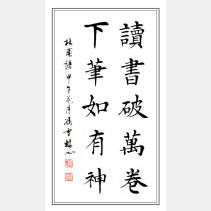 讀書破萬卷
下筆如有神
杜甫詩甲午